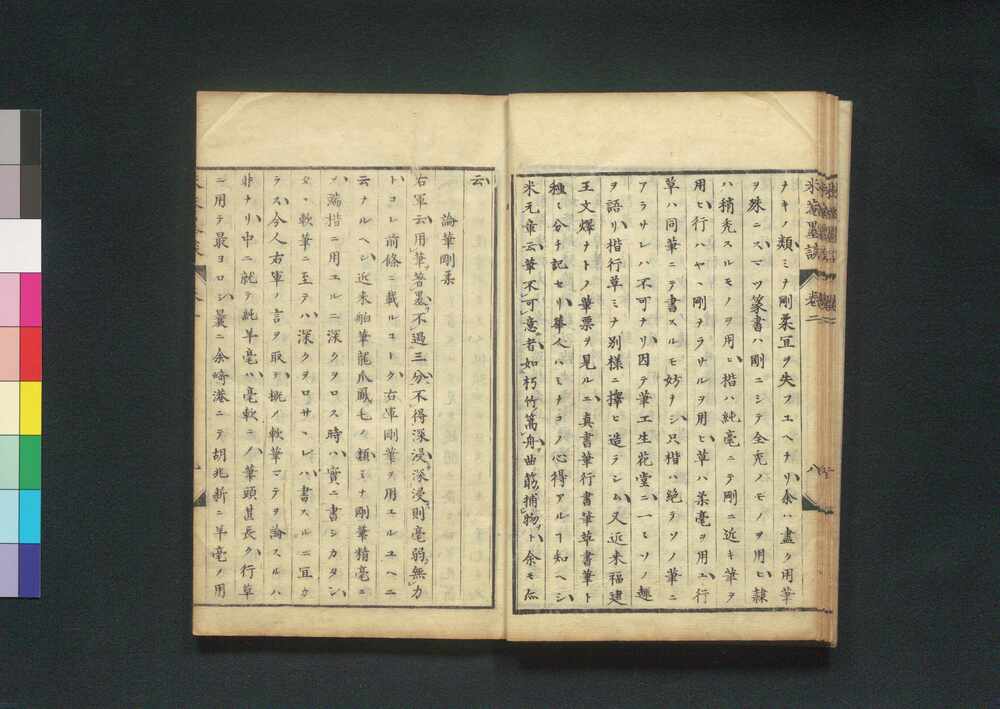 米菴墨談 卷二 八
ナキノ類ミナ剛柔宜ヲ失フユヘナリ余ハ盡ク用筆
ヲ殊ニスマツ篆書ハ剛ニシテ全禿ノモノヲ用ヒ隸
ハ稍禿スルモノヲ用ヒ楷ハ純毫ニテ剛ニ近キ筆ヲ
用ヒ行ハヤヽ剛ヲラサルヲ用ヒ草ハ柔毫ヲ用ユ行
草ハ同筆ニテ書スルモ妨ナシ只楷ハ絶テソノ筆ニ
アラサレハ不可ナリ因テ筆工生花堂ニ一々ソノ趣
ヲ語リ楷行草ミナ別樣ニ擇ヒ造ラシム又近来福建
王文燁ナトノ筆票ヲ見ルニ真書筆行書筆草書筆ト
種々分チ記セリ華人ハミナコノ心得アルヿ知ヘシ
米元章云筆不可意者如朽竹篙舟曲筯捕物ト余モ亦
云
論筆剛柔
右軍云用筆著墨不過三分不得深浸深浸則毫弱無力
トコレ前條ニ載ルコトク右軍剛筆ヲ用エルユヘニ
云ナルヘシ近来舶筆龍爪鳳毛ノ類ミナ剛筆精毫ニ
シ端楷ニ用エルニ深クヲロス時ハ實ニ書シカタシ
又軟筆ニ至テハ深クヲロサヽレハ書スルニ宜カ
ラス今人右軍ノ言ヲ取テ概ノ軟筆マテヲ論スルハ
非ナリ中ニ就テ純羊毫ハ毫軟ニノ筆頭甚長ク行草
ニ用テ最ヨロシ曩ニ余崎港ニテ胡兆新ニ羊毫ノ用